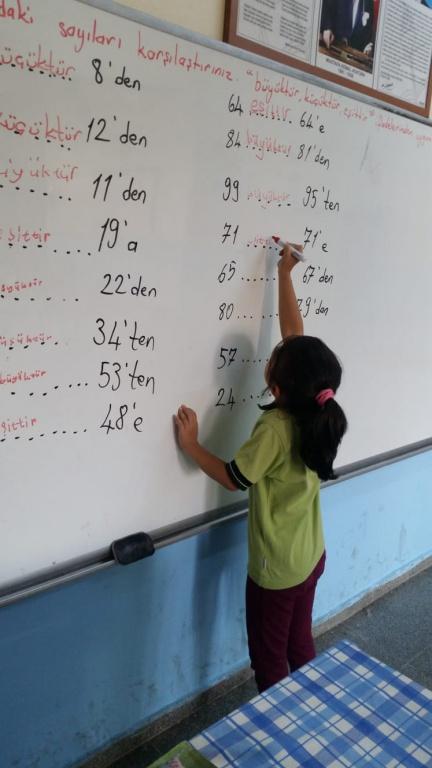 daki sayıları karşılaştırınız. "büyüktür, küçüktür, eşittir"
küçüktür 8'den
küçüktür 12'den
büyüktür 11'den
eşittir 19'a
22'den
küçüktür 34'ten
büyüktür 53'ten
eşittir 48'e
64 eşittir 64'e
84 büyüktür 81'den
99 büyüktür 95'ten
71 71'e
65 ...... 67'den
80 ...... 79'den
57 ....
24 ....